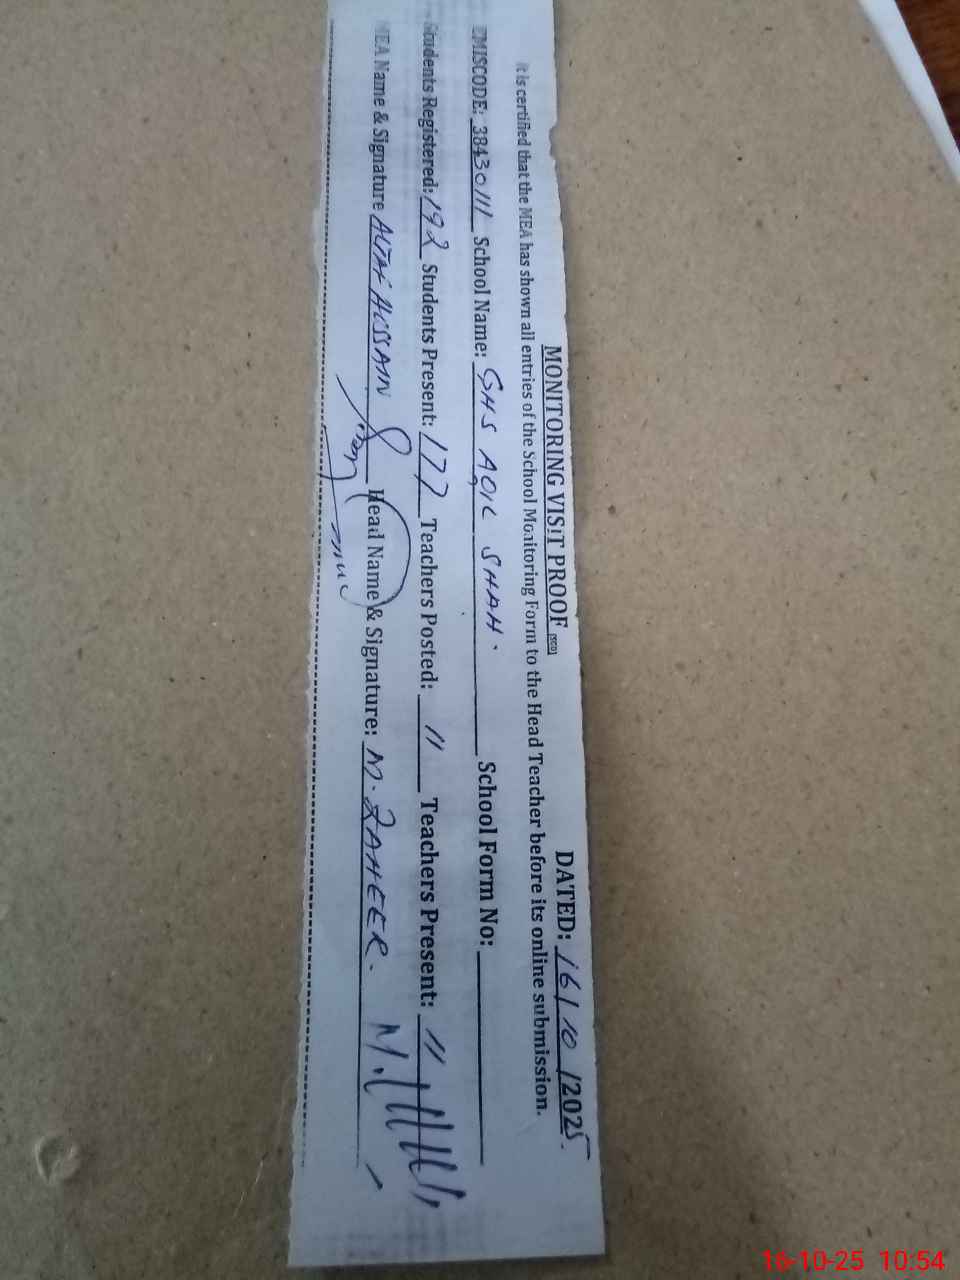 MONITORING VISIT PROOF (SED) DATED: 16/10/2025
It is certified that the MEA has shown all entries of the School Monitoring Form to the Head Teacher before its online submission.
EMISCODE: 38430111 School Name: GHS ADIL SHAH. School Form No:
Students Registered: 192 Students Present: 177 Teachers Posted: 11 Teachers Present: 11
MEA Name & Signature ALTAF HUSSAIN Head Name & Signature: M. ZAHEER.
16-10-25 10:54